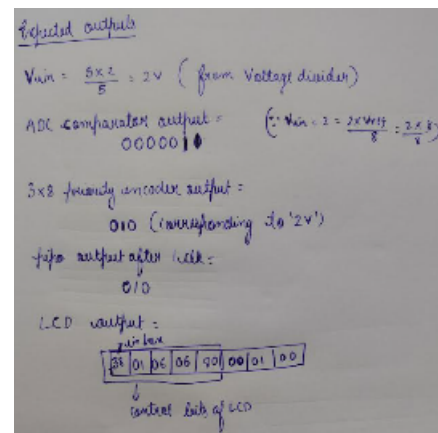 Expected outputs
Vin = 5x2/5 = 2V (from Voltage divider)
ADC comparator output =
000001
(∵ Vin = 2 =
3x8 priority encoder output =
010 (corresponding to '2V')
pipo output after clk =
010
LCD output =
01 06 06 80 00 01 00
control bits of LCD